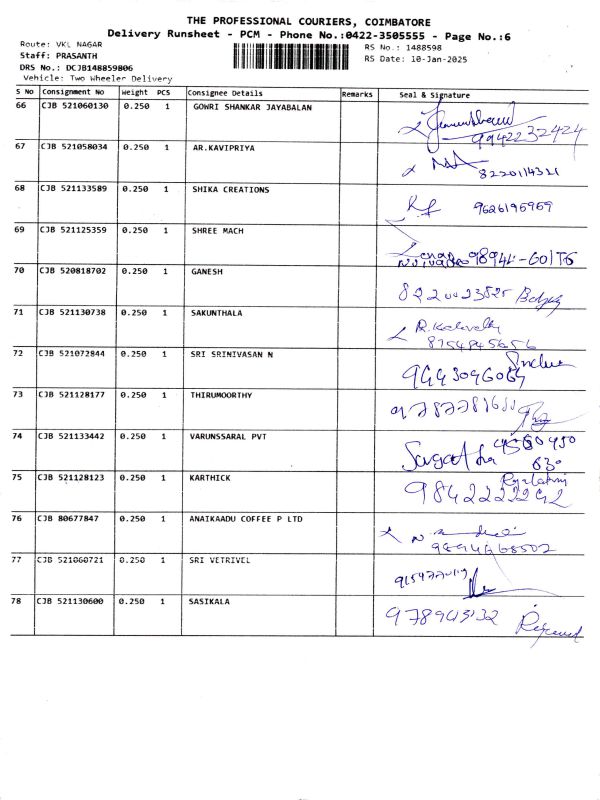 THE PROFESSIONAL COURIERS, COIMBATORE
Delivery Runsheet - PCM - Phone No.:0422-3505555 - Page No.:6
Route: VKL NAGAR
RS No.: 1488598
Staff: PRASANTH
RS Date: 10-Jan-2025
DRS No.: DCJB148859806
Vehicle: Two Wheeler Delivery
S No Consignment No Weight PCS Consignee Details Remarks Seal & Signature
66 CJB 521060130 0.250 1 GOWRI SHANKAR JAYABALAN
9942232424
67 CJB 521058034 0.250 1 AR.KAVIPRIYA
8220114321
68 CJB 521133589 0.250 1 SHIKA CREATIONS
9626195959
69 CJB 521125359 0.250 1 SHREE MACH
70 CJB 520818702 0.250 1 GANESH
71 CJB 521130738 0.250 1 SAKUNTHALA
8754845656
72 CJB 521072844 0.250 1 SRI SRINIVASAN N
73 CJB 521128177 0.250 1 THIRUMOORTHY
74 CJB 521133442 0.250 1 VARUNSSARAL PVT
630
75 CJB 521128123 0.250 1 KARTHICK
76 CJB 80677847 0.250 1 ANAIKAADU COFFEE P LTD
77 CJB 521060721 0.250 1 SRI VETRIVEL
78 CJB 521130600 0.250 1 SASIKALA